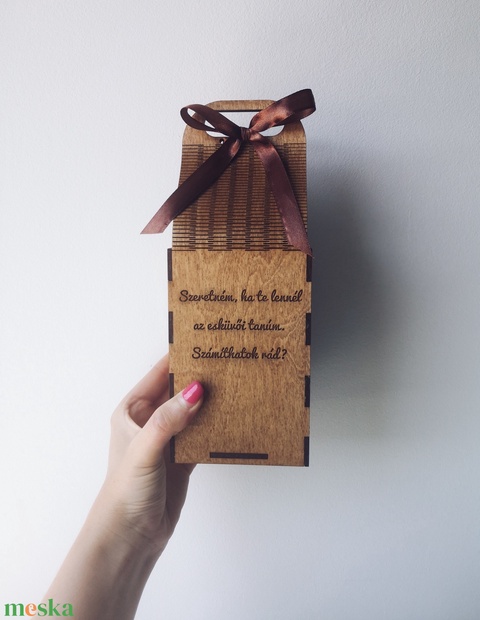 Szeretném, ha te lennél
az esküvői tanúm.
Számíthatok rád?
meska